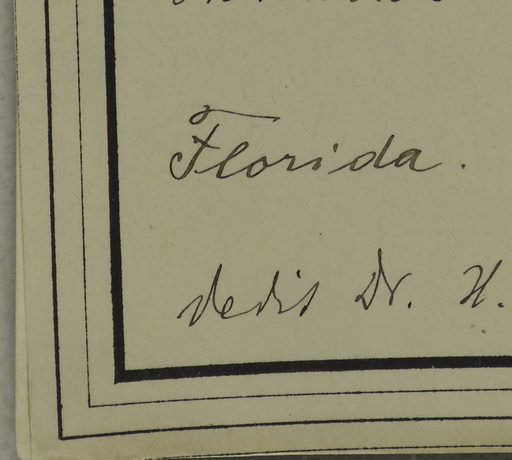 Florida.
dedit Dr. H.